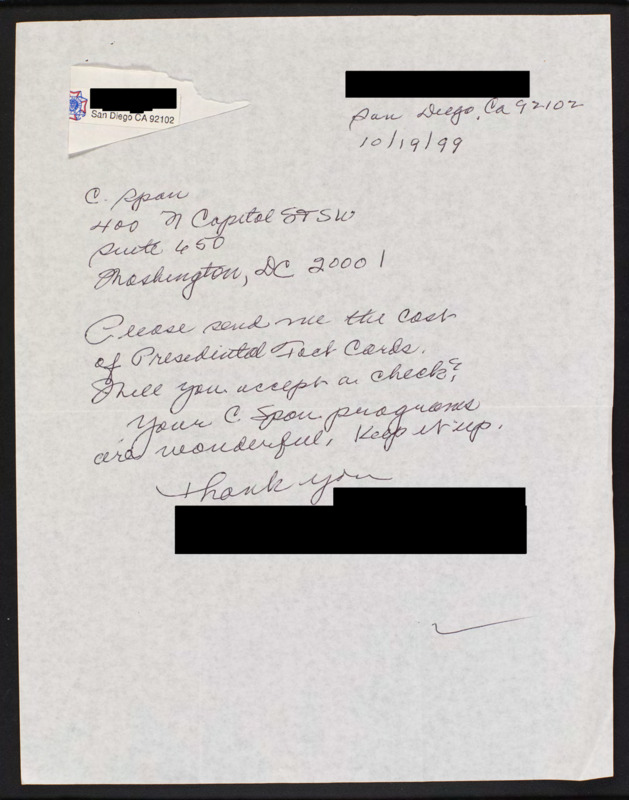 San Diego CA 92102
San Diego, Ca 92102
10/19/99
C. Span
400 N Capitol ST SW
Suite 650
Washington, DC 20001
Please send me the cost
of Presedintal Fact Cards.
Will you accept a check?
Your C Span programs
are wonderful. Keep it up.
Thank you